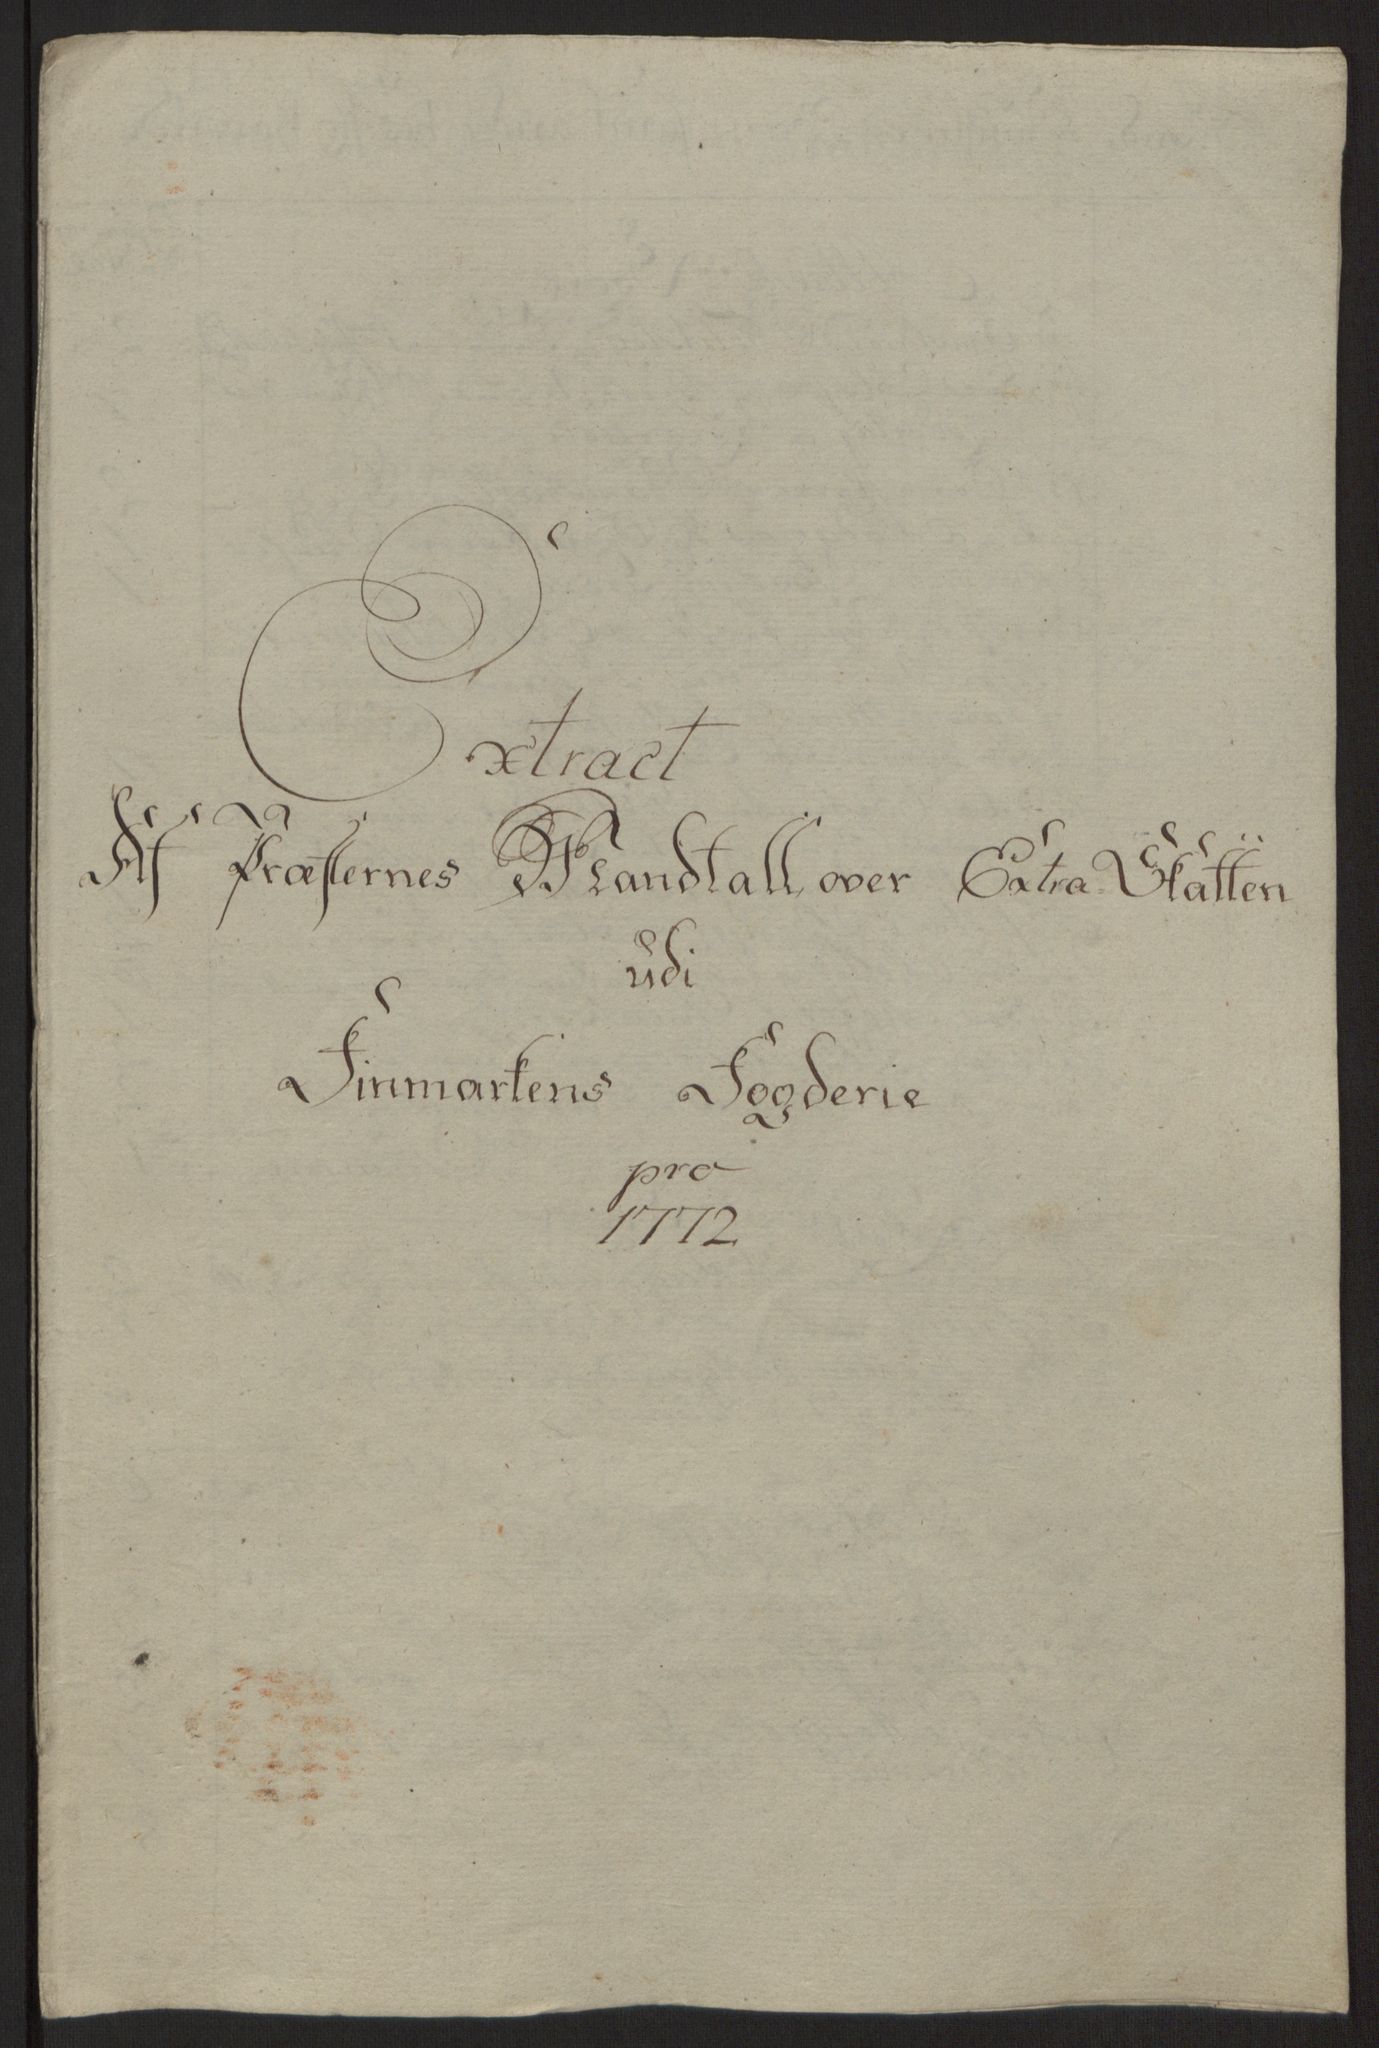 Extract
Af Præsternes Mandtall over Extra Skatten
udi
Finmarkens Fogderie
pro
1772